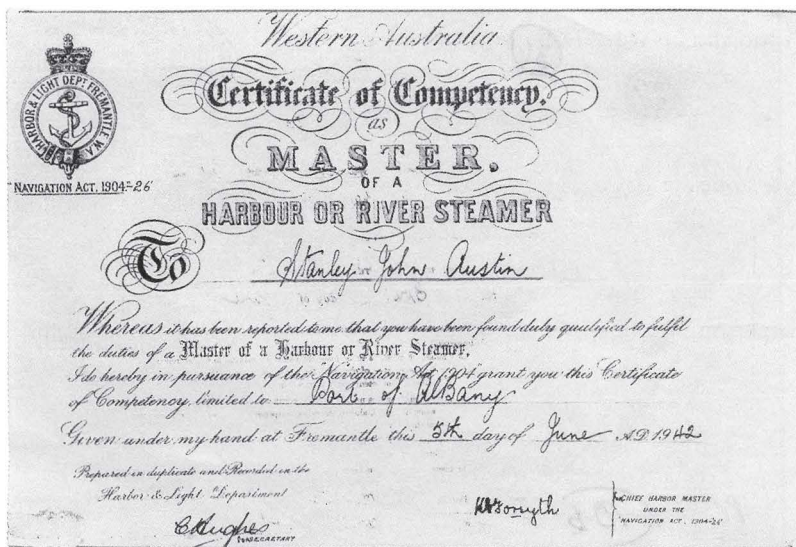 Western Australia
HARBOR & LIGHT DEPT FREMANTLE W.A.
NAVIGATION ACT. 1904-26
Certificate of Competency.
as
MASTER.
OF A
HARBOUR OR RIVER STEAMER
To
Stanley John Austin
Whereas it has been reported to me that you have been found duly qualified to fulfil
the duties of a Master of a Harbour or River Steamer,
I do hereby in pursuance of the "Navigation Act 1904" grant you this Certificate
of Competency, limited to Port of Albany
Given under my hand at Fremantle this 5th day of June A.D. 1942
Prepared in duplicate and Recorded in the
Harbor & Light Department
C Hughes
SECRETARY
Forsyth
CHIEF HARBOR MASTER
UNDER THE
NAVIGATION ACT, 1904-26